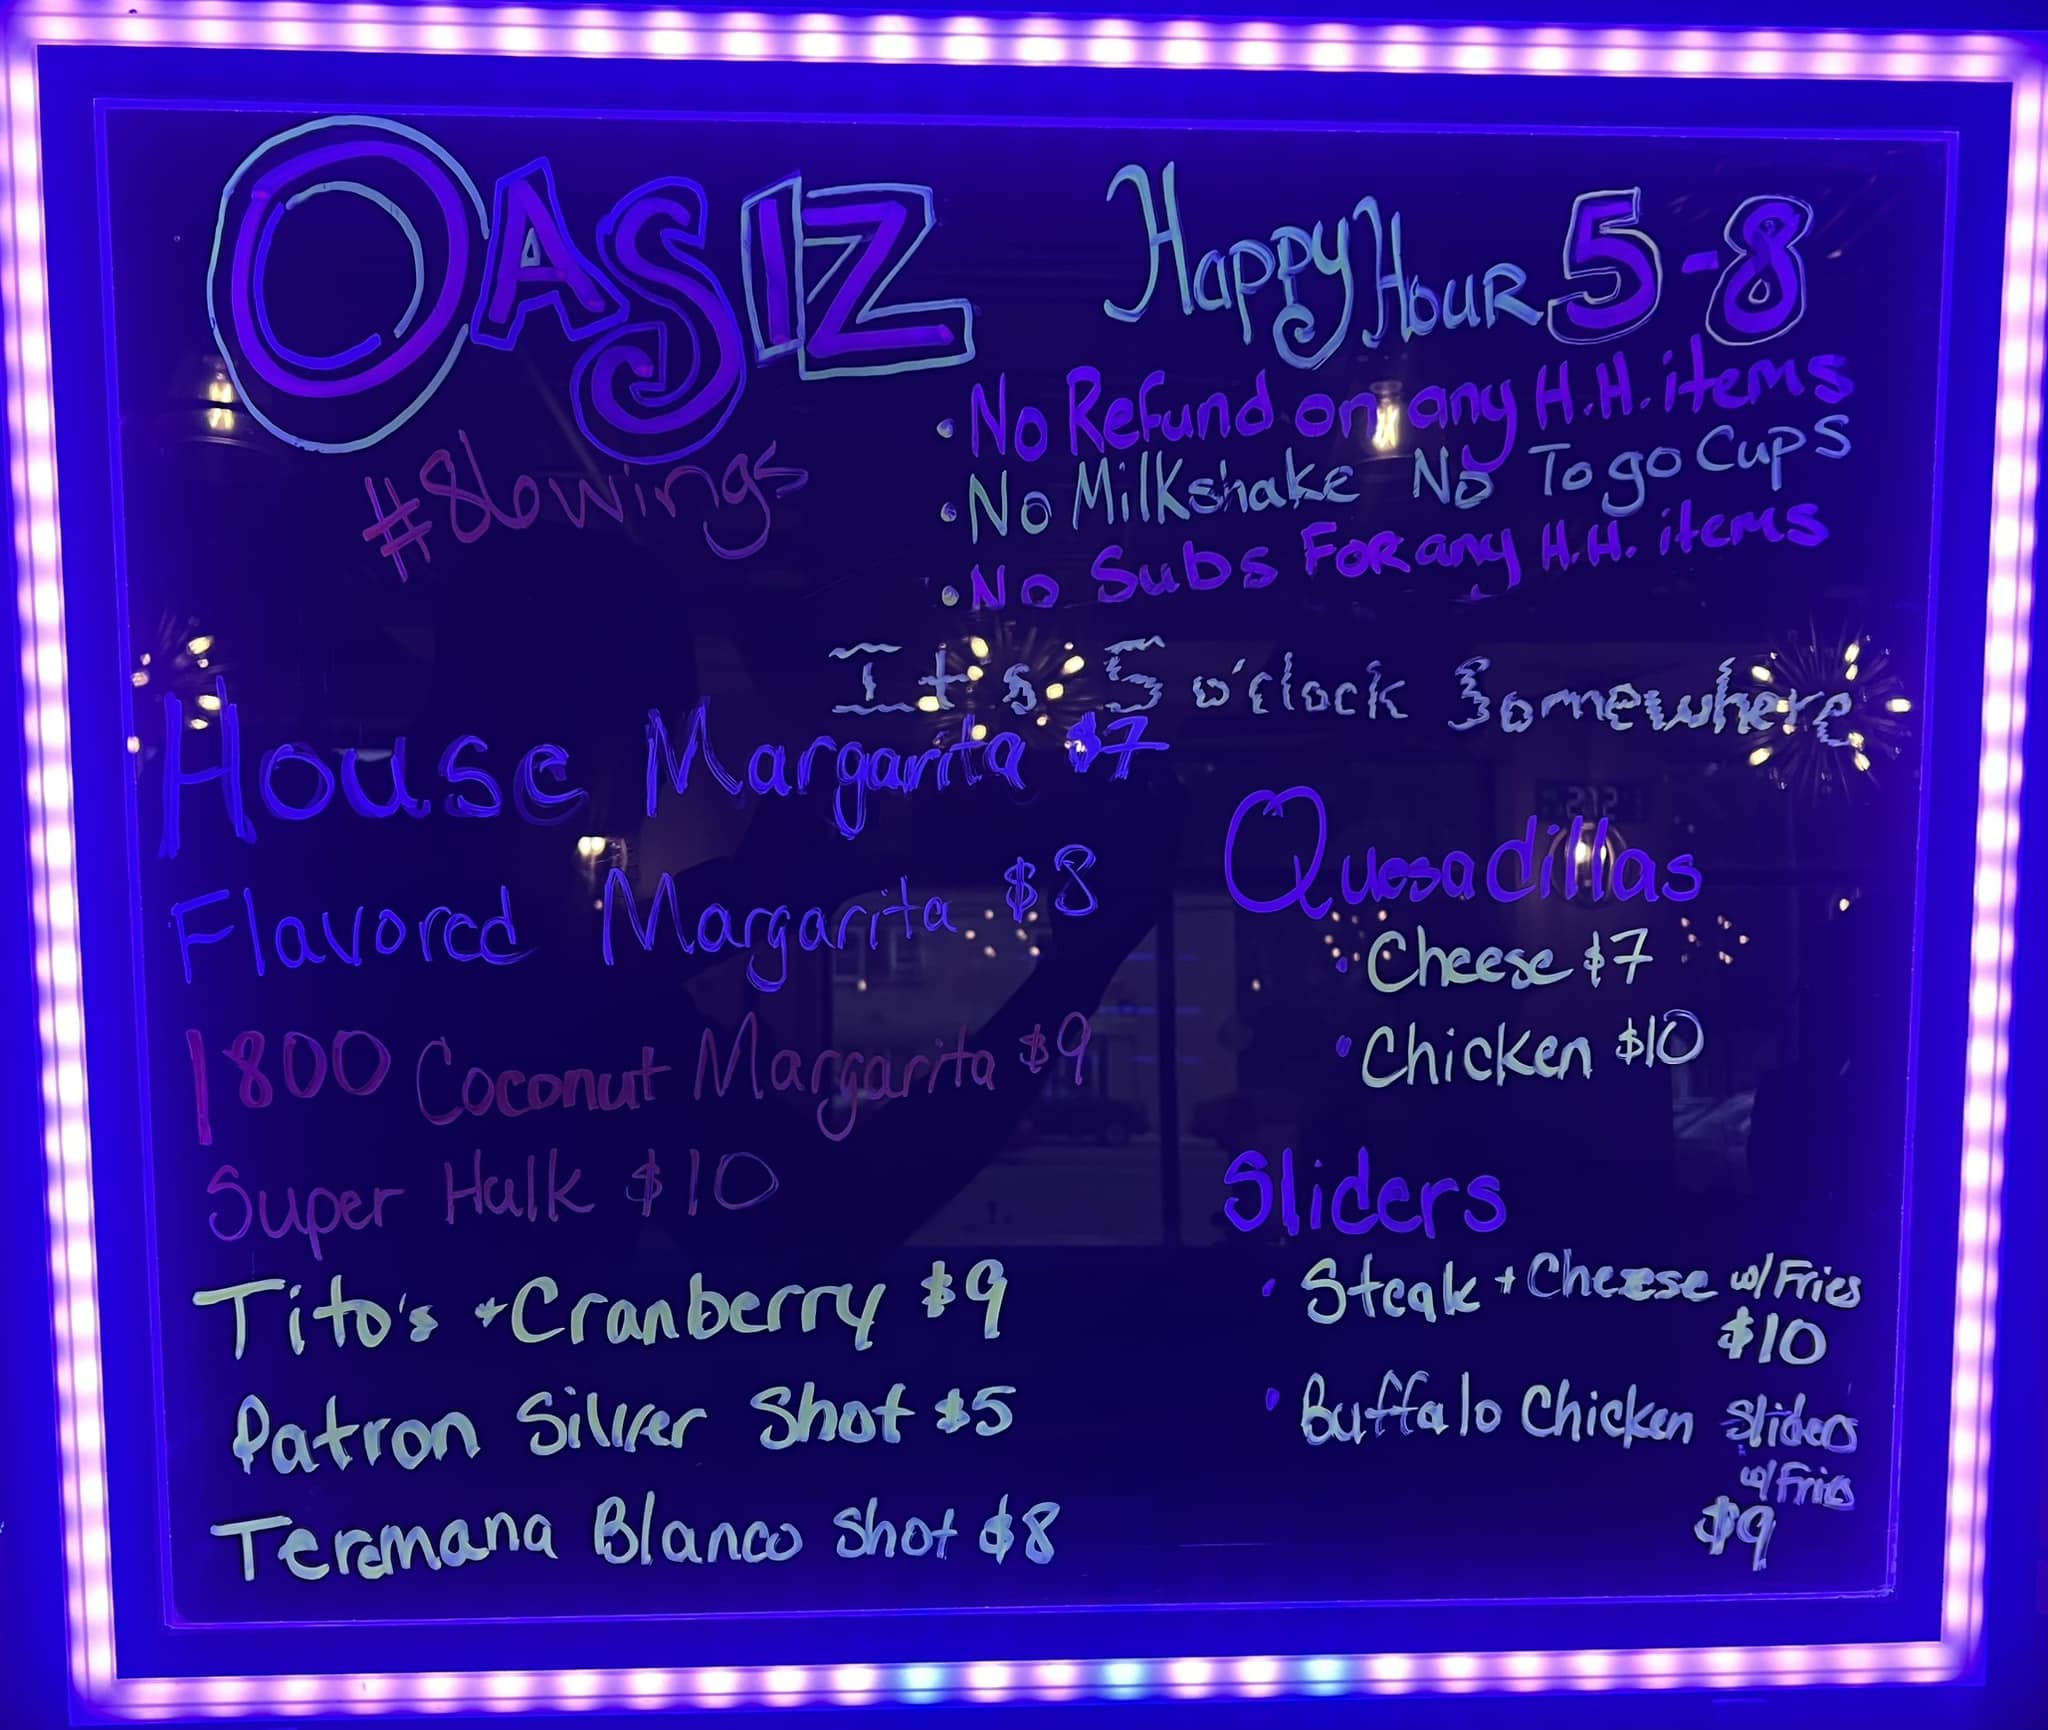 OASIZ
#86wings
Happy Hour 5-8
• No Refund on any H.H. items
• No Milkshake No To go Cups
• No Subs For any H.H. items
It's 5 o'clock Somewhere
House Margarita $7
Flavored Margarita $8
1800 Coconut Margarita $9
Super Hulk $10
Tito's + Cranberry $9
Patron Silver Shot $5
Teremana Blanco shot $8
Quesadillas
• Cheese $7
• Chicken $10
Sliders
• Steak + Cheese w/Fries
$10
• Buffalo Chicken Sliders
w/Fries
$9